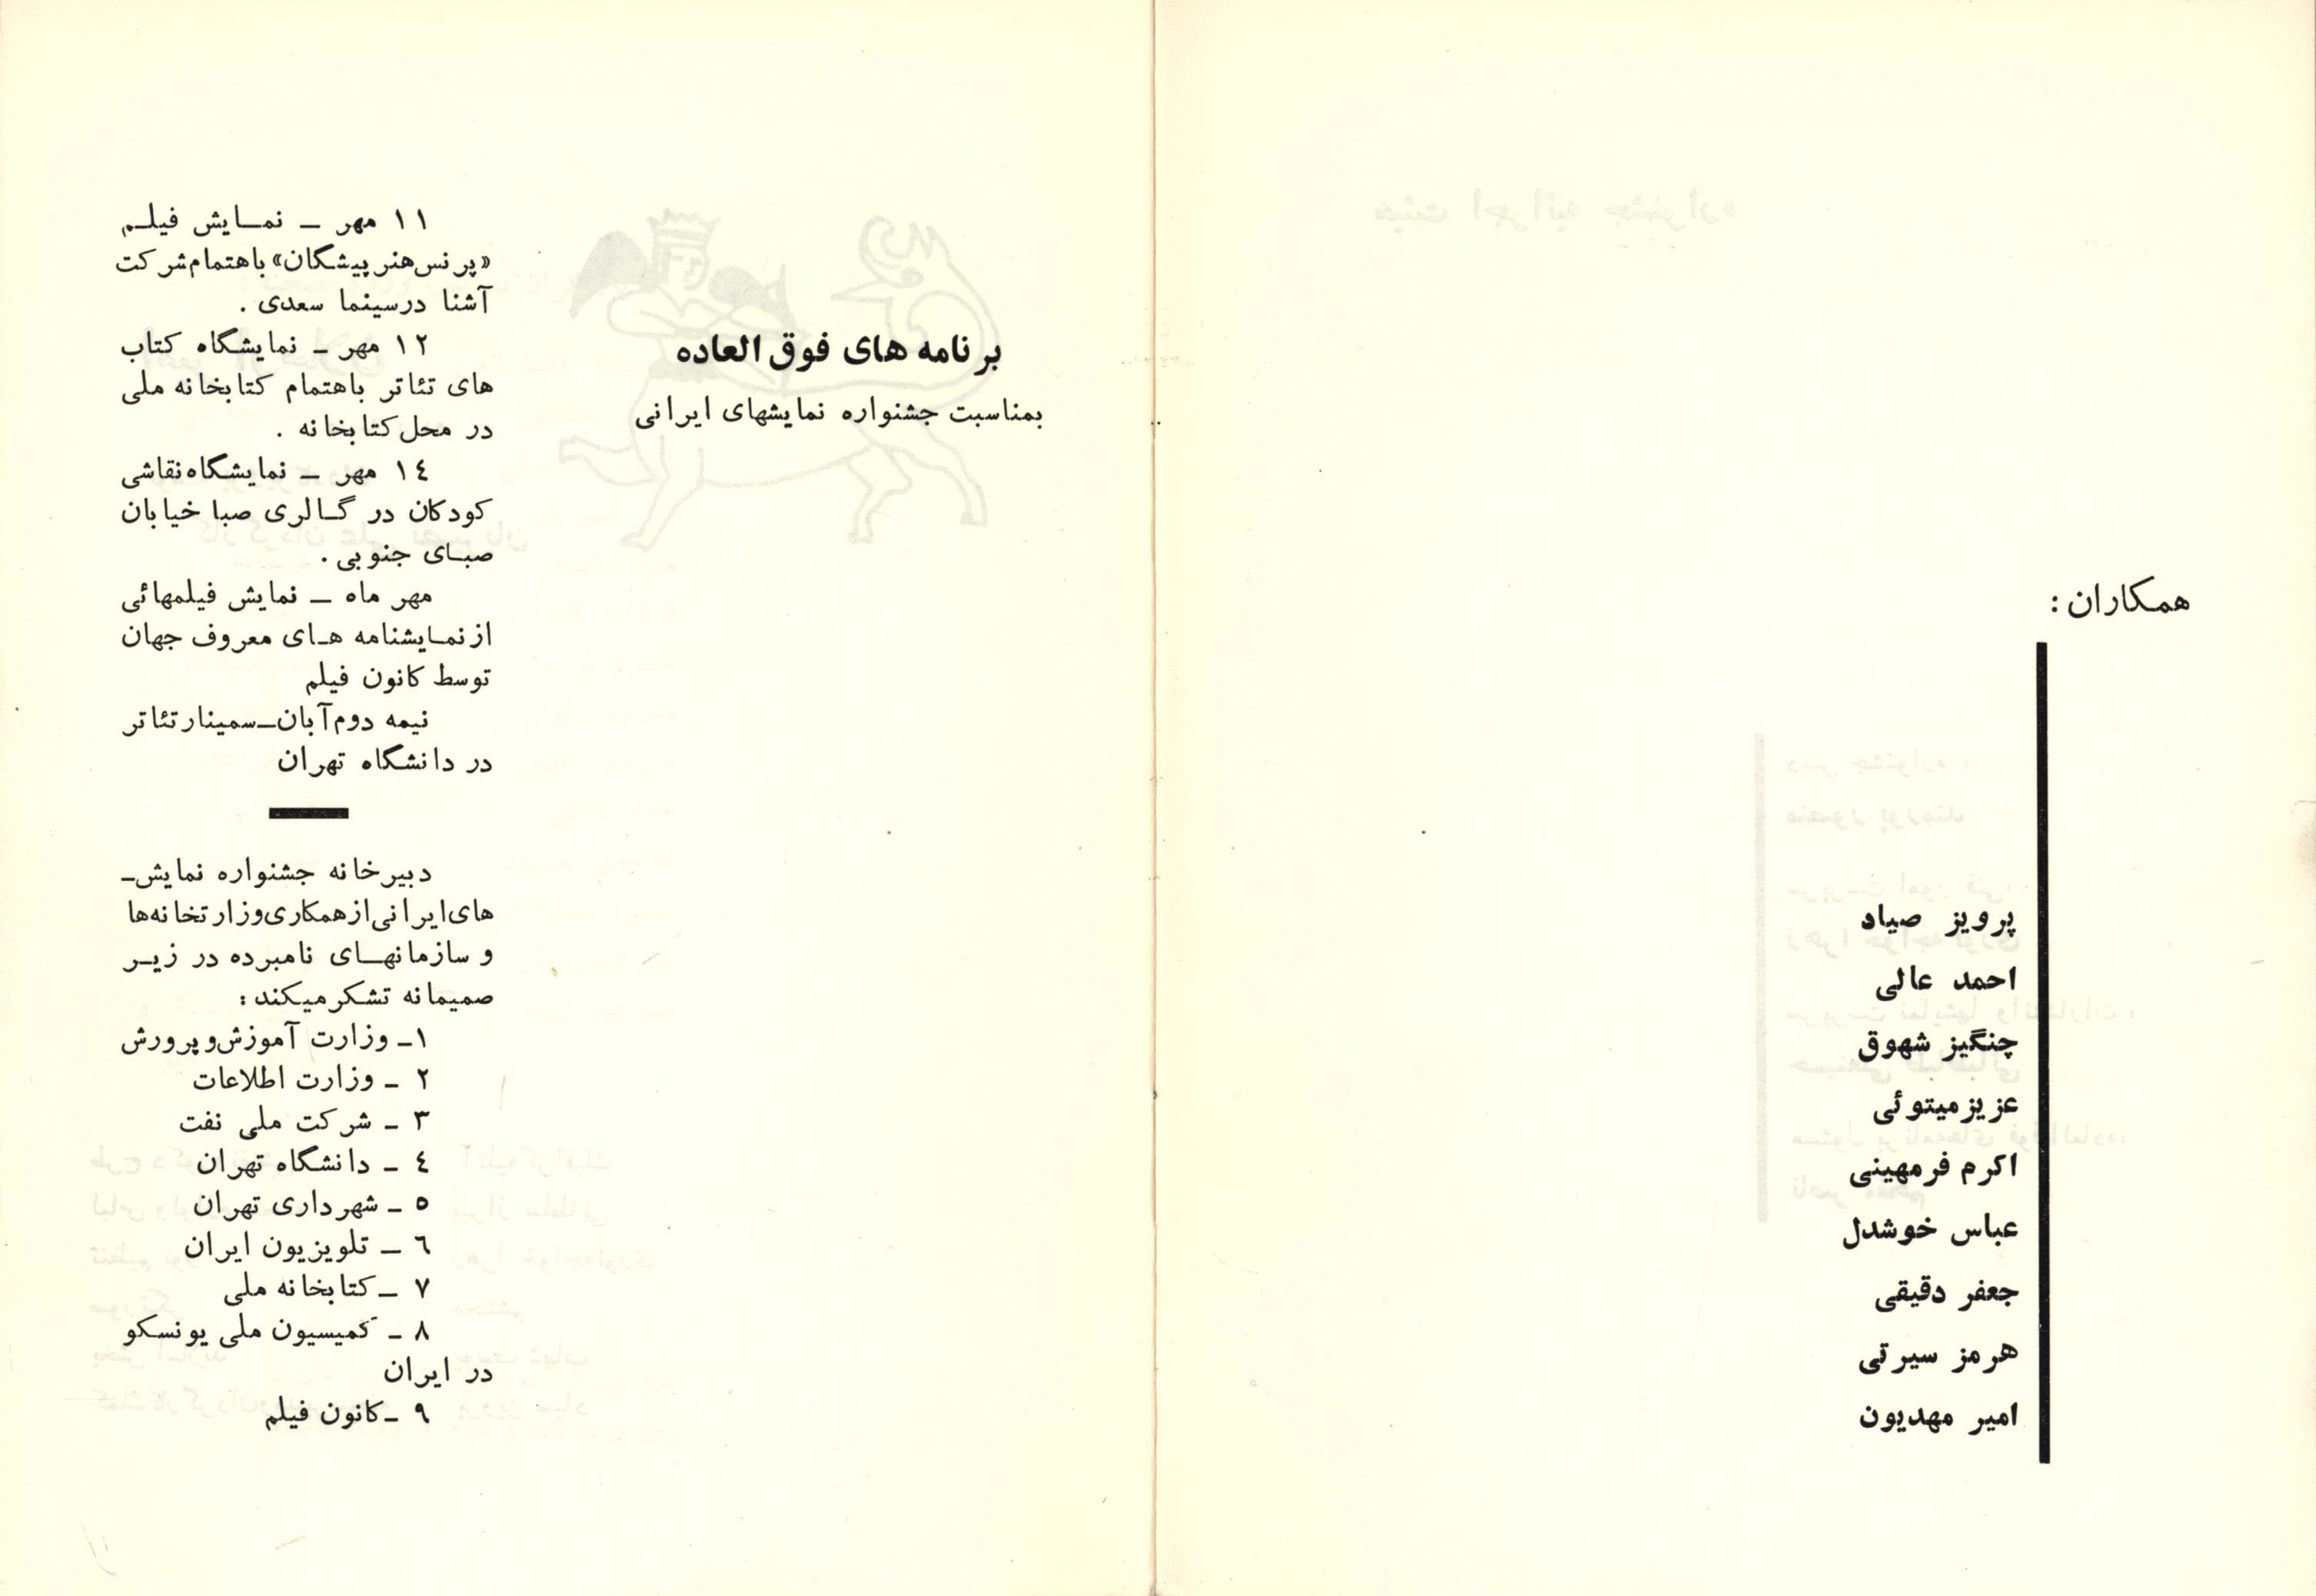 همکاران :
پرویز صیاد
احمد عالی
چنگیز شهوق
عزیز میتوئی
اکرم فرمهینی
عباس خوشدل
جعفر دقیقی
هرمز سیرتی
امیر مهدیون
برنامه های فوق العاده
بمناسبت جشنواره نمایشهای ایرانی
۱۱ مهر ــ نمــایش فیلــم
«پرنس‌هنرپیشگان» باهتمام‌شرکت
آشنا درسینما سعدی .
۱۲ مهر ــ نمایشگاه کتاب
های تئاتر باهتمام کتابخانه ملی
در محل کتابخانه .
۱٤ مهر ــ نمایشگاه نقاشی
کودکان در گــالری صبا خیابان
صبـای جنوبی .
مهر ماه ــ نمایش فیلمهائی
از نمــایشنامه هــای معروف جهان
توسط کانون فیلم
نیمه دوم آبان ــ سمینار تئاتر
در دانشگاه تهران
دبیرخانه جشنواره نمایش‌ـ
های‌ایرانی‌ازهمکاری‌وزارتخانه‌ها
و سازمانهــای نامبرده در زیــر
صمیمانه تشکر میکند :
۱ــ وزارت آموزش‌وپرورش
۲ ــ وزارت اطلاعات
۳ ــ شرکت ملی نفت
٤ ــ دانشگاه تهران
۵ ــ شهرداری تهران
٦ ــ تلویزیون ایران
۷ ــ کتابخانه ملی
۸ ــ کمیسیون ملی یونسکو
در ایران
۹ ــ کانون فیلم